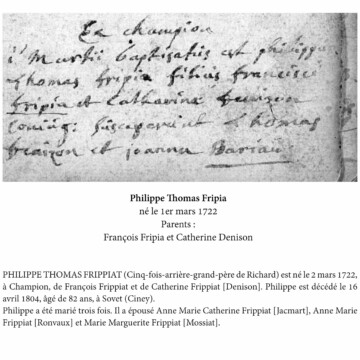 Ex champion
1 Martii baptizatus est philippe
thomas fripia filius francisci
fripia et Catharina
Coniug: susceperunt thomas
et joanna
Philippe Thomas Fripia
né le 1er mars 1722
Parents :
François Fripia et Catherine Denison
PHILIPPE THOMAS FRIPPIAT (Cinq-fois-arrière-grand-père de Richard) est né le 2 mars 1722,
à Champion, de François Frippiat et de Catherine Frippiat [Denison]. Philippe est décédé le 16
avril 1804, âgé de 82 ans, à Sovet (Ciney).
Philippe a été marié trois fois. Il a épousé Anne Marie Catherine Frippiat [Jacmart], Anne Marie
Frippiat [Ronvaux] et Marie Marguerite Frippiat [Mossiat].